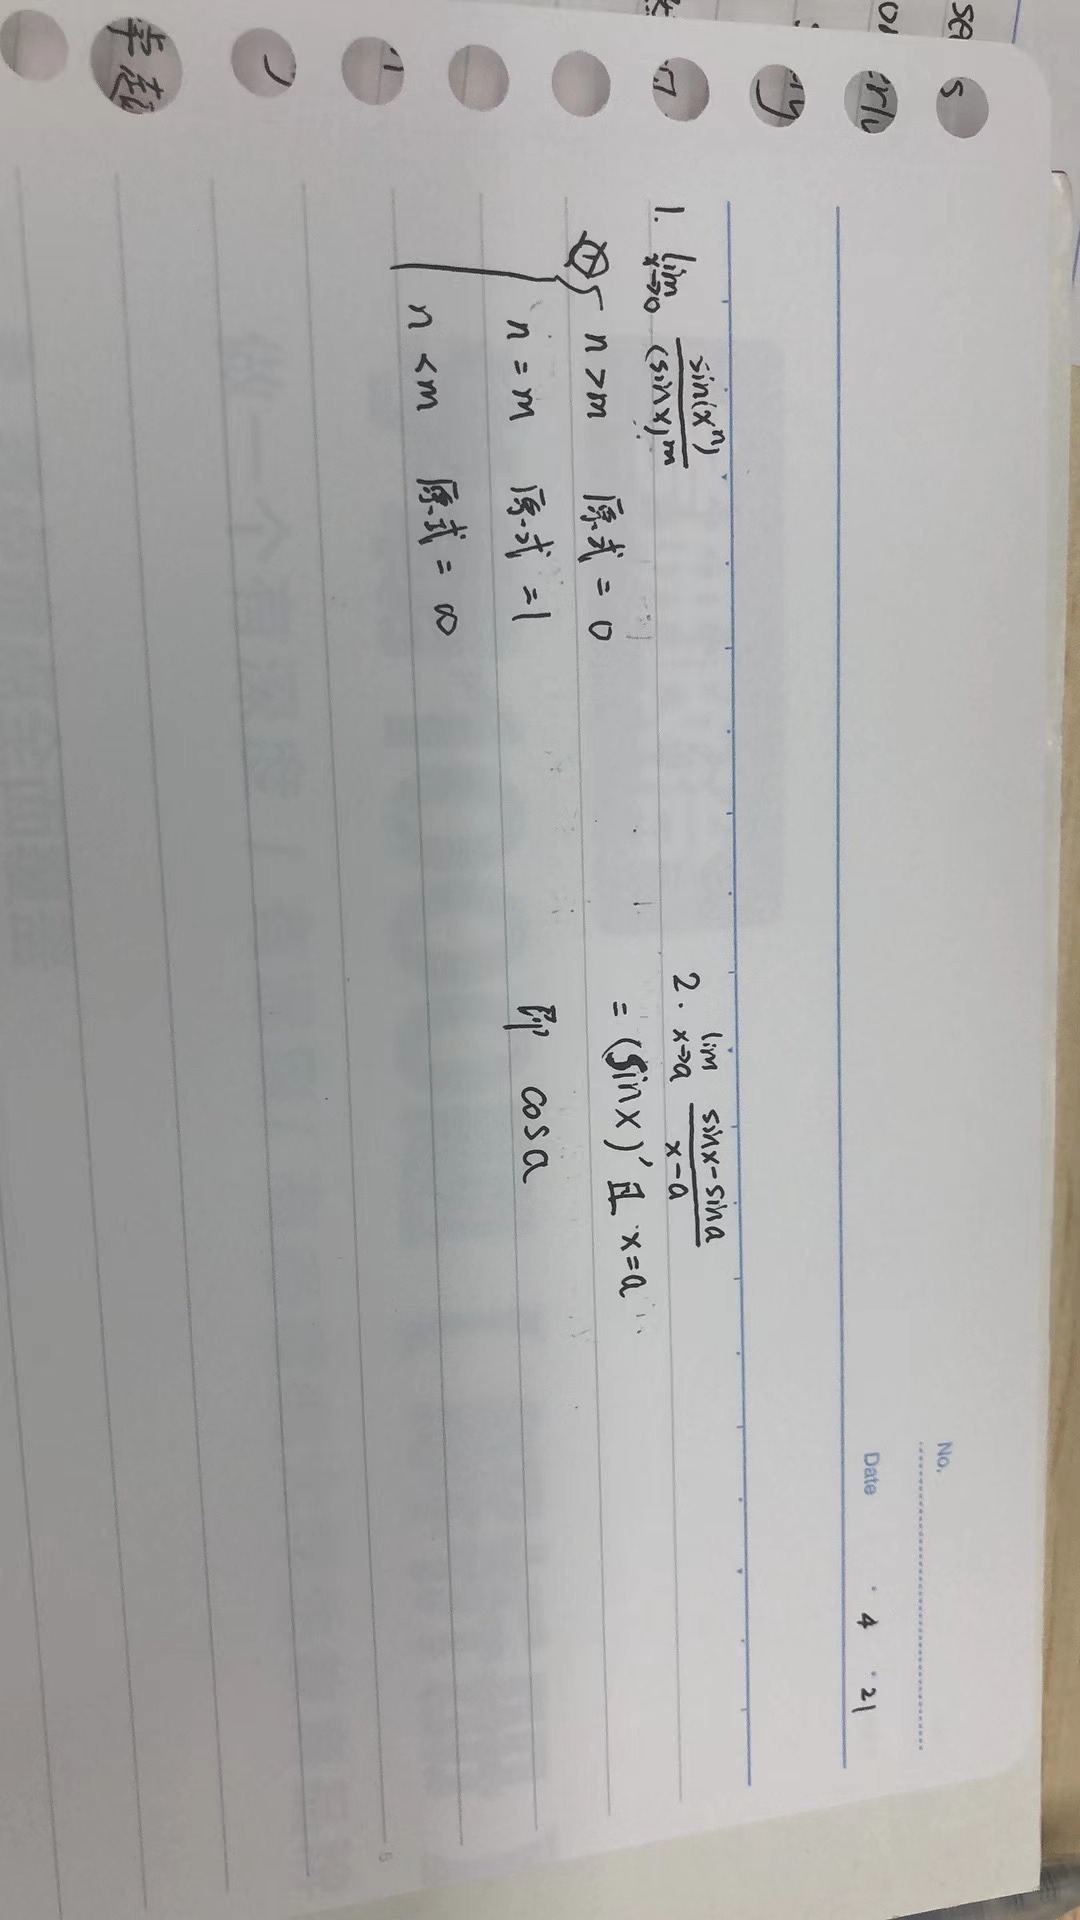 No.
Date · 4 · 21
1. lim x→0 sin(x^n) / (sin x)^m
① n>m 原式 = 0
n = m 原式 = 1
n < m 原式 = ∞
2. lim x→a sinx-sina / x-a
= (sinx)' 且 x=a
即 cosa